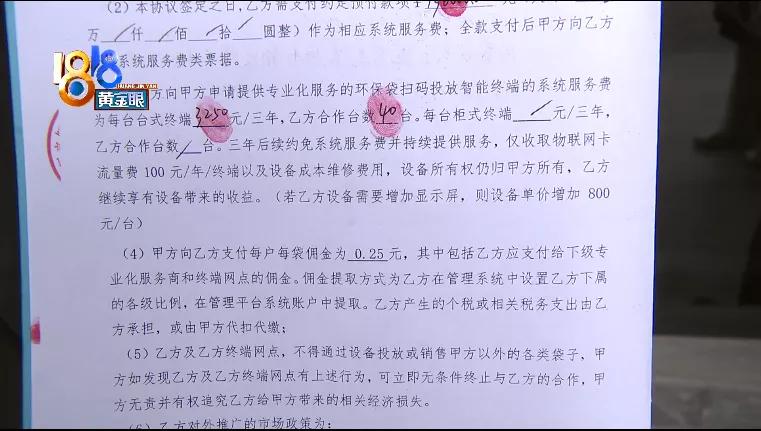 (2)本协议签定之日,乙方需支付约定预付款项
万/仟/佰/拾/圆整)作为相应系统服务费;全款支付后甲方向乙方
系统服务费类票据。
1818
HUANG JIN YAN
黄金眼
方向甲方申请提供专业化服务的环保袋扫码投放智能终端的系统服务费
为每台台式终端3250元/三年,乙方合作台数40台。每台柜式终端/元/三年,
乙方合作台数/台。三年后续约免系统服务费并持续提供服务,仅收取物联网卡
流量费100元/年/终端以及设备成本维修费用,设备所有权仍归甲方所有,乙方
继续享有设备带来的收益。(若乙方设备需要增加显示屏,则设备单价增加800
元/台)
(4)甲方向乙方支付每户每袋佣金为0.25元,其中包括乙方应支付给下级专
业化服务商和终端网点的佣金。佣金提取方式为乙方在管理系统中设置乙方下属
的各级比例,在管理平台系统账户中提取。乙方产生的个税或相关税务支出由乙
方承担,或由甲方代扣代缴;
(5)乙方及乙方终端网点,不得通过设备投放或销售甲方以外的各类袋子,甲
方如发现乙方及乙方终端网点有上述行为,可立即无条件终止与乙方的合作,甲
方无责并有权追究乙方给甲方带来的相关经济损失。
(6)乙方对外推广的市场政策为: